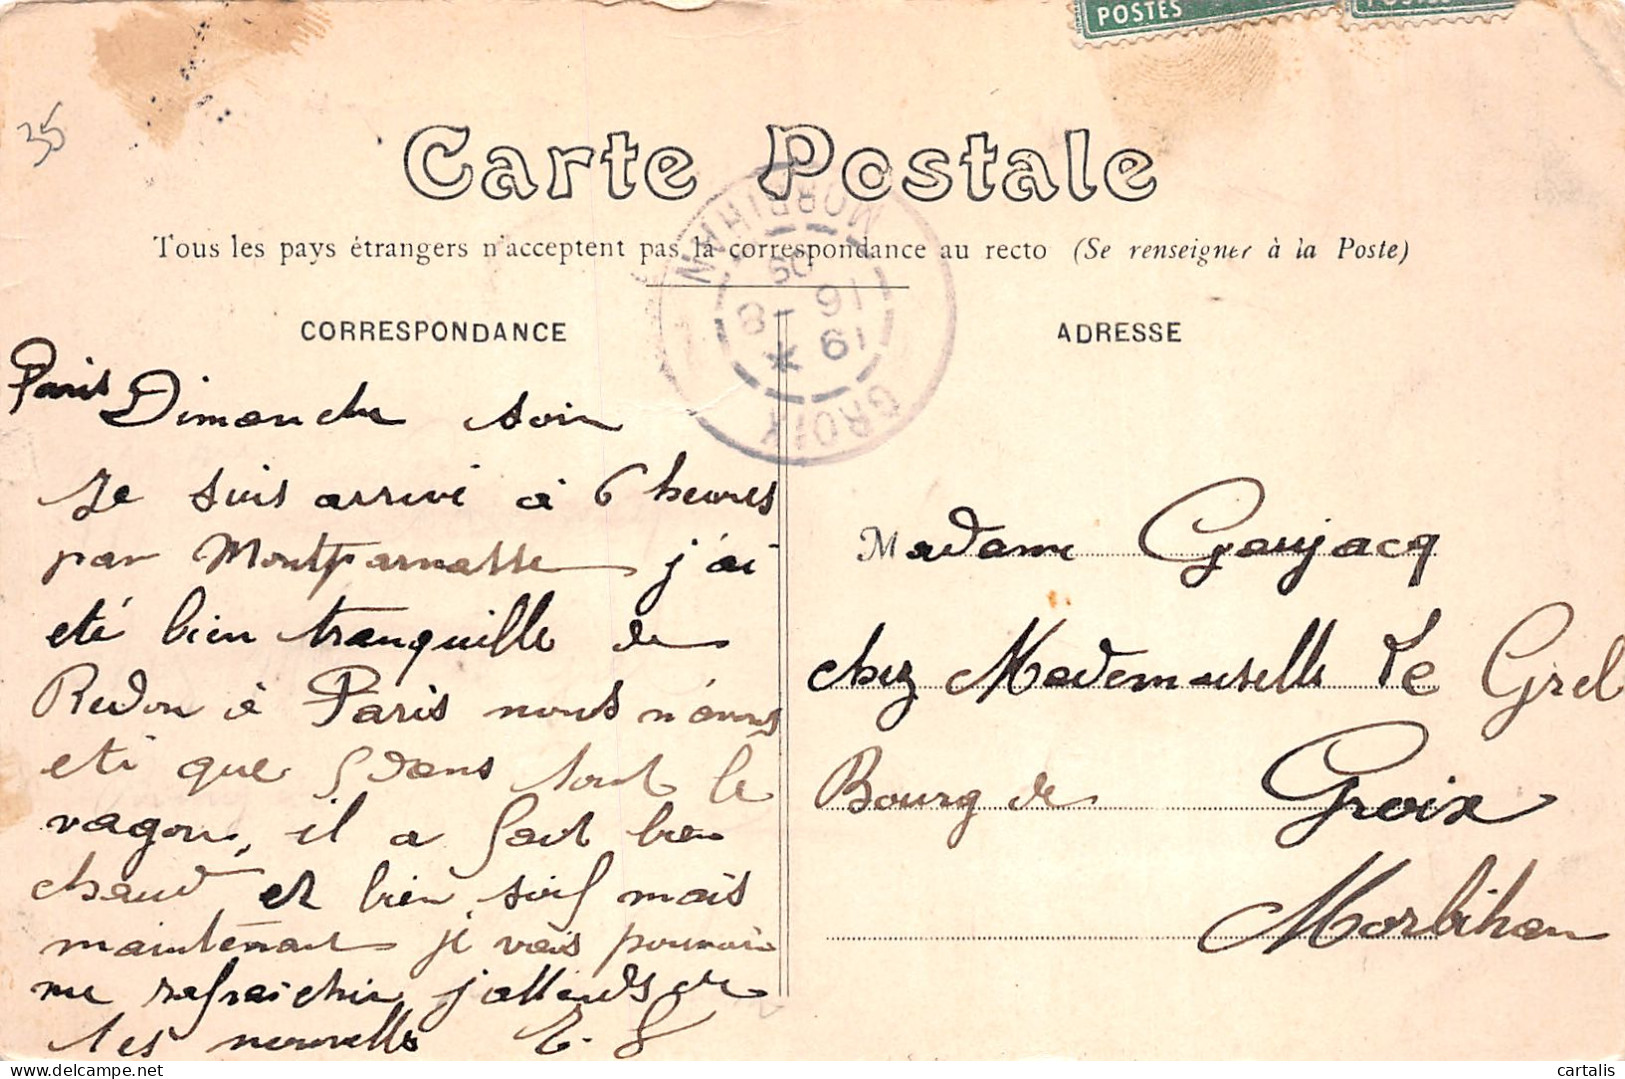 POSTES
POSTES
35
Carte Postale
Tous les pays étrangers n'acceptent pas la correspondance au recto (Se renseigner à la Poste)
MORBIHAN
19 * 16 -8 09
GROIX
CORRESPONDANCE
Paris Dimanche soir
Je suis arrivé à 6 heures
par Montparnasse j'ai
eté bien tranquille de
Redon à Paris nous n'avons
eté que 5 dans tout le
vagon, il a fait bien
chaud et bien soif mais
maintenant je vais pouvoir
me rafraichir j'attends de
tes nouvelle E. G
ADRESSE
Madame Gaujacq
chez Mademoiselle Le Grel
Bourg de Groix
Morbihan
cartalis